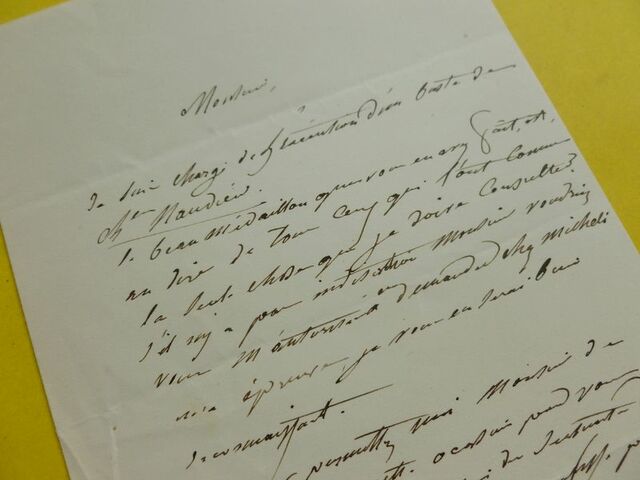 Monsieur,
Je suis chargé de l'exécution d'un buste de
Ch.
le beau médaillon que vous en avez fait, est,
au dire de tous ceux qui l'ont connu
la seule chose que je doive consulter.
S'il n'y a pas indiscrétion Monsieur voudriez
vous m'autoriser à en demander chez
une épreuve, je vous en serai bien
reconnaissant.
permettez moi Monsieur de
cette occasion pour vous
de